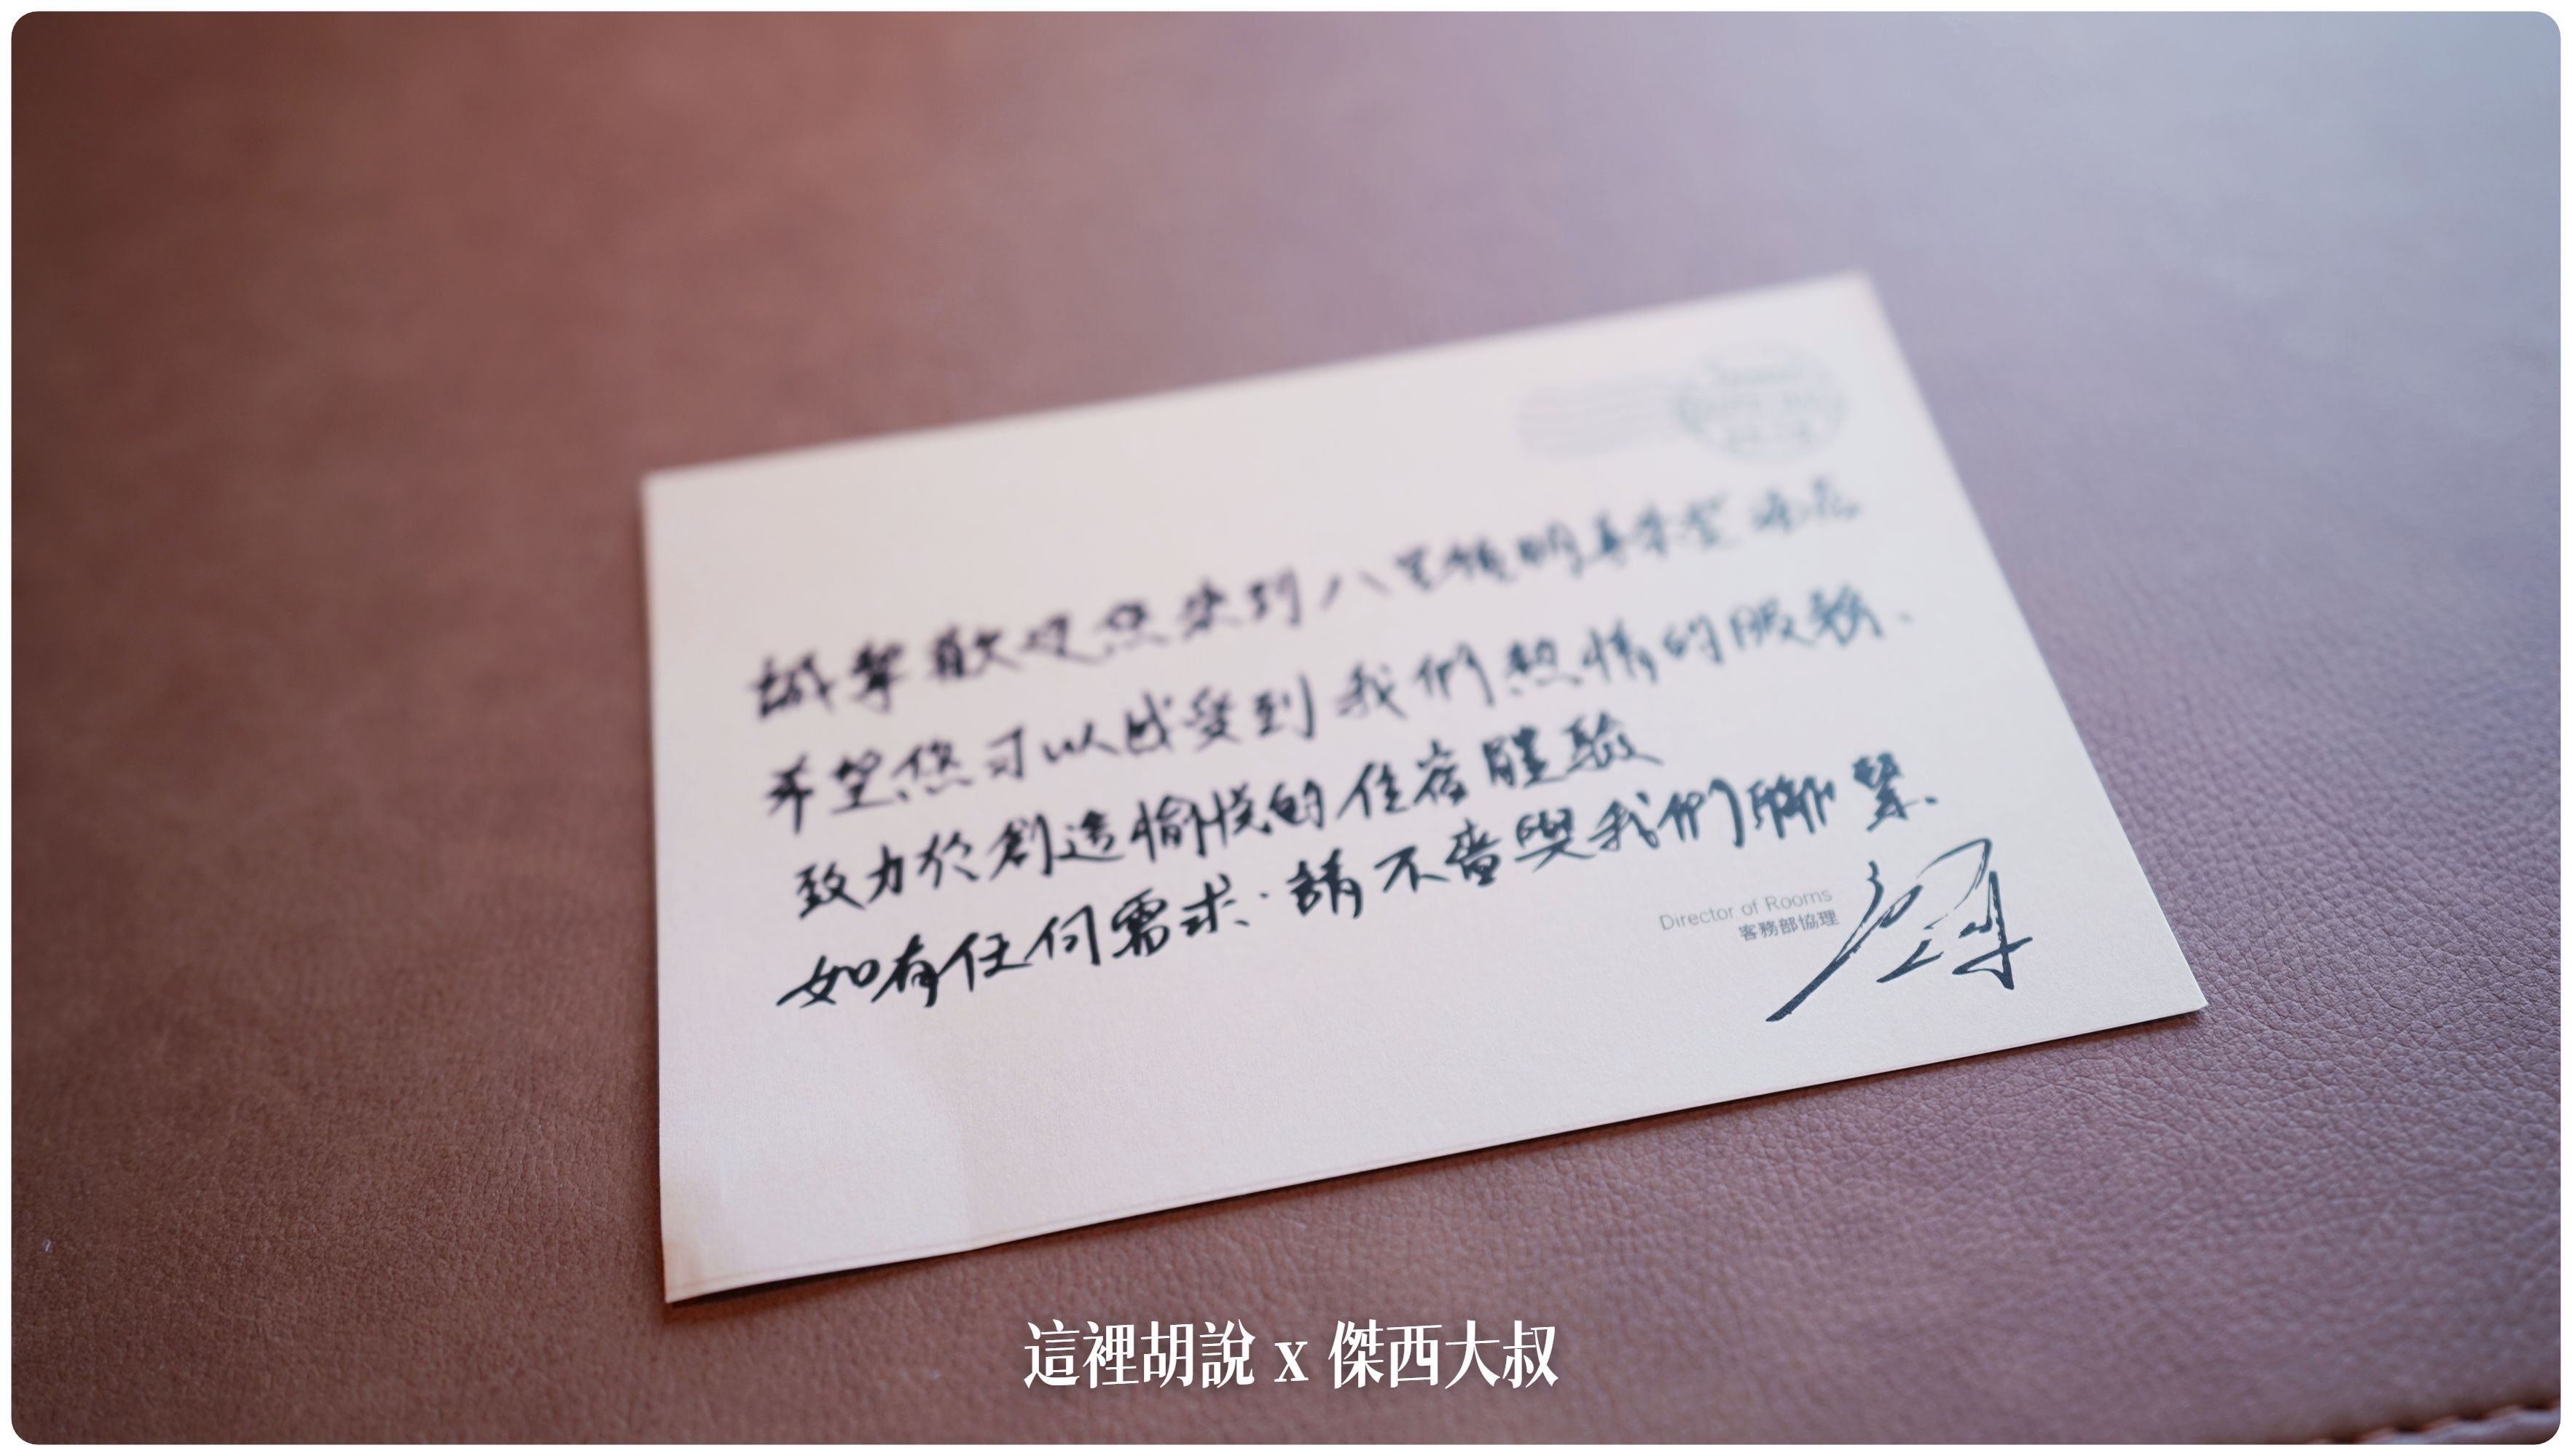 誠摯歡迎您來到八里福朋喜來登酒店
希望您可以感受到我們熱情的服務、
致力於創造愉悅的住宿體驗
如有任何需求、請不吝與我們聯繫、
Director of Rooms
客務部協理
這裡胡說 x 傑西大叔